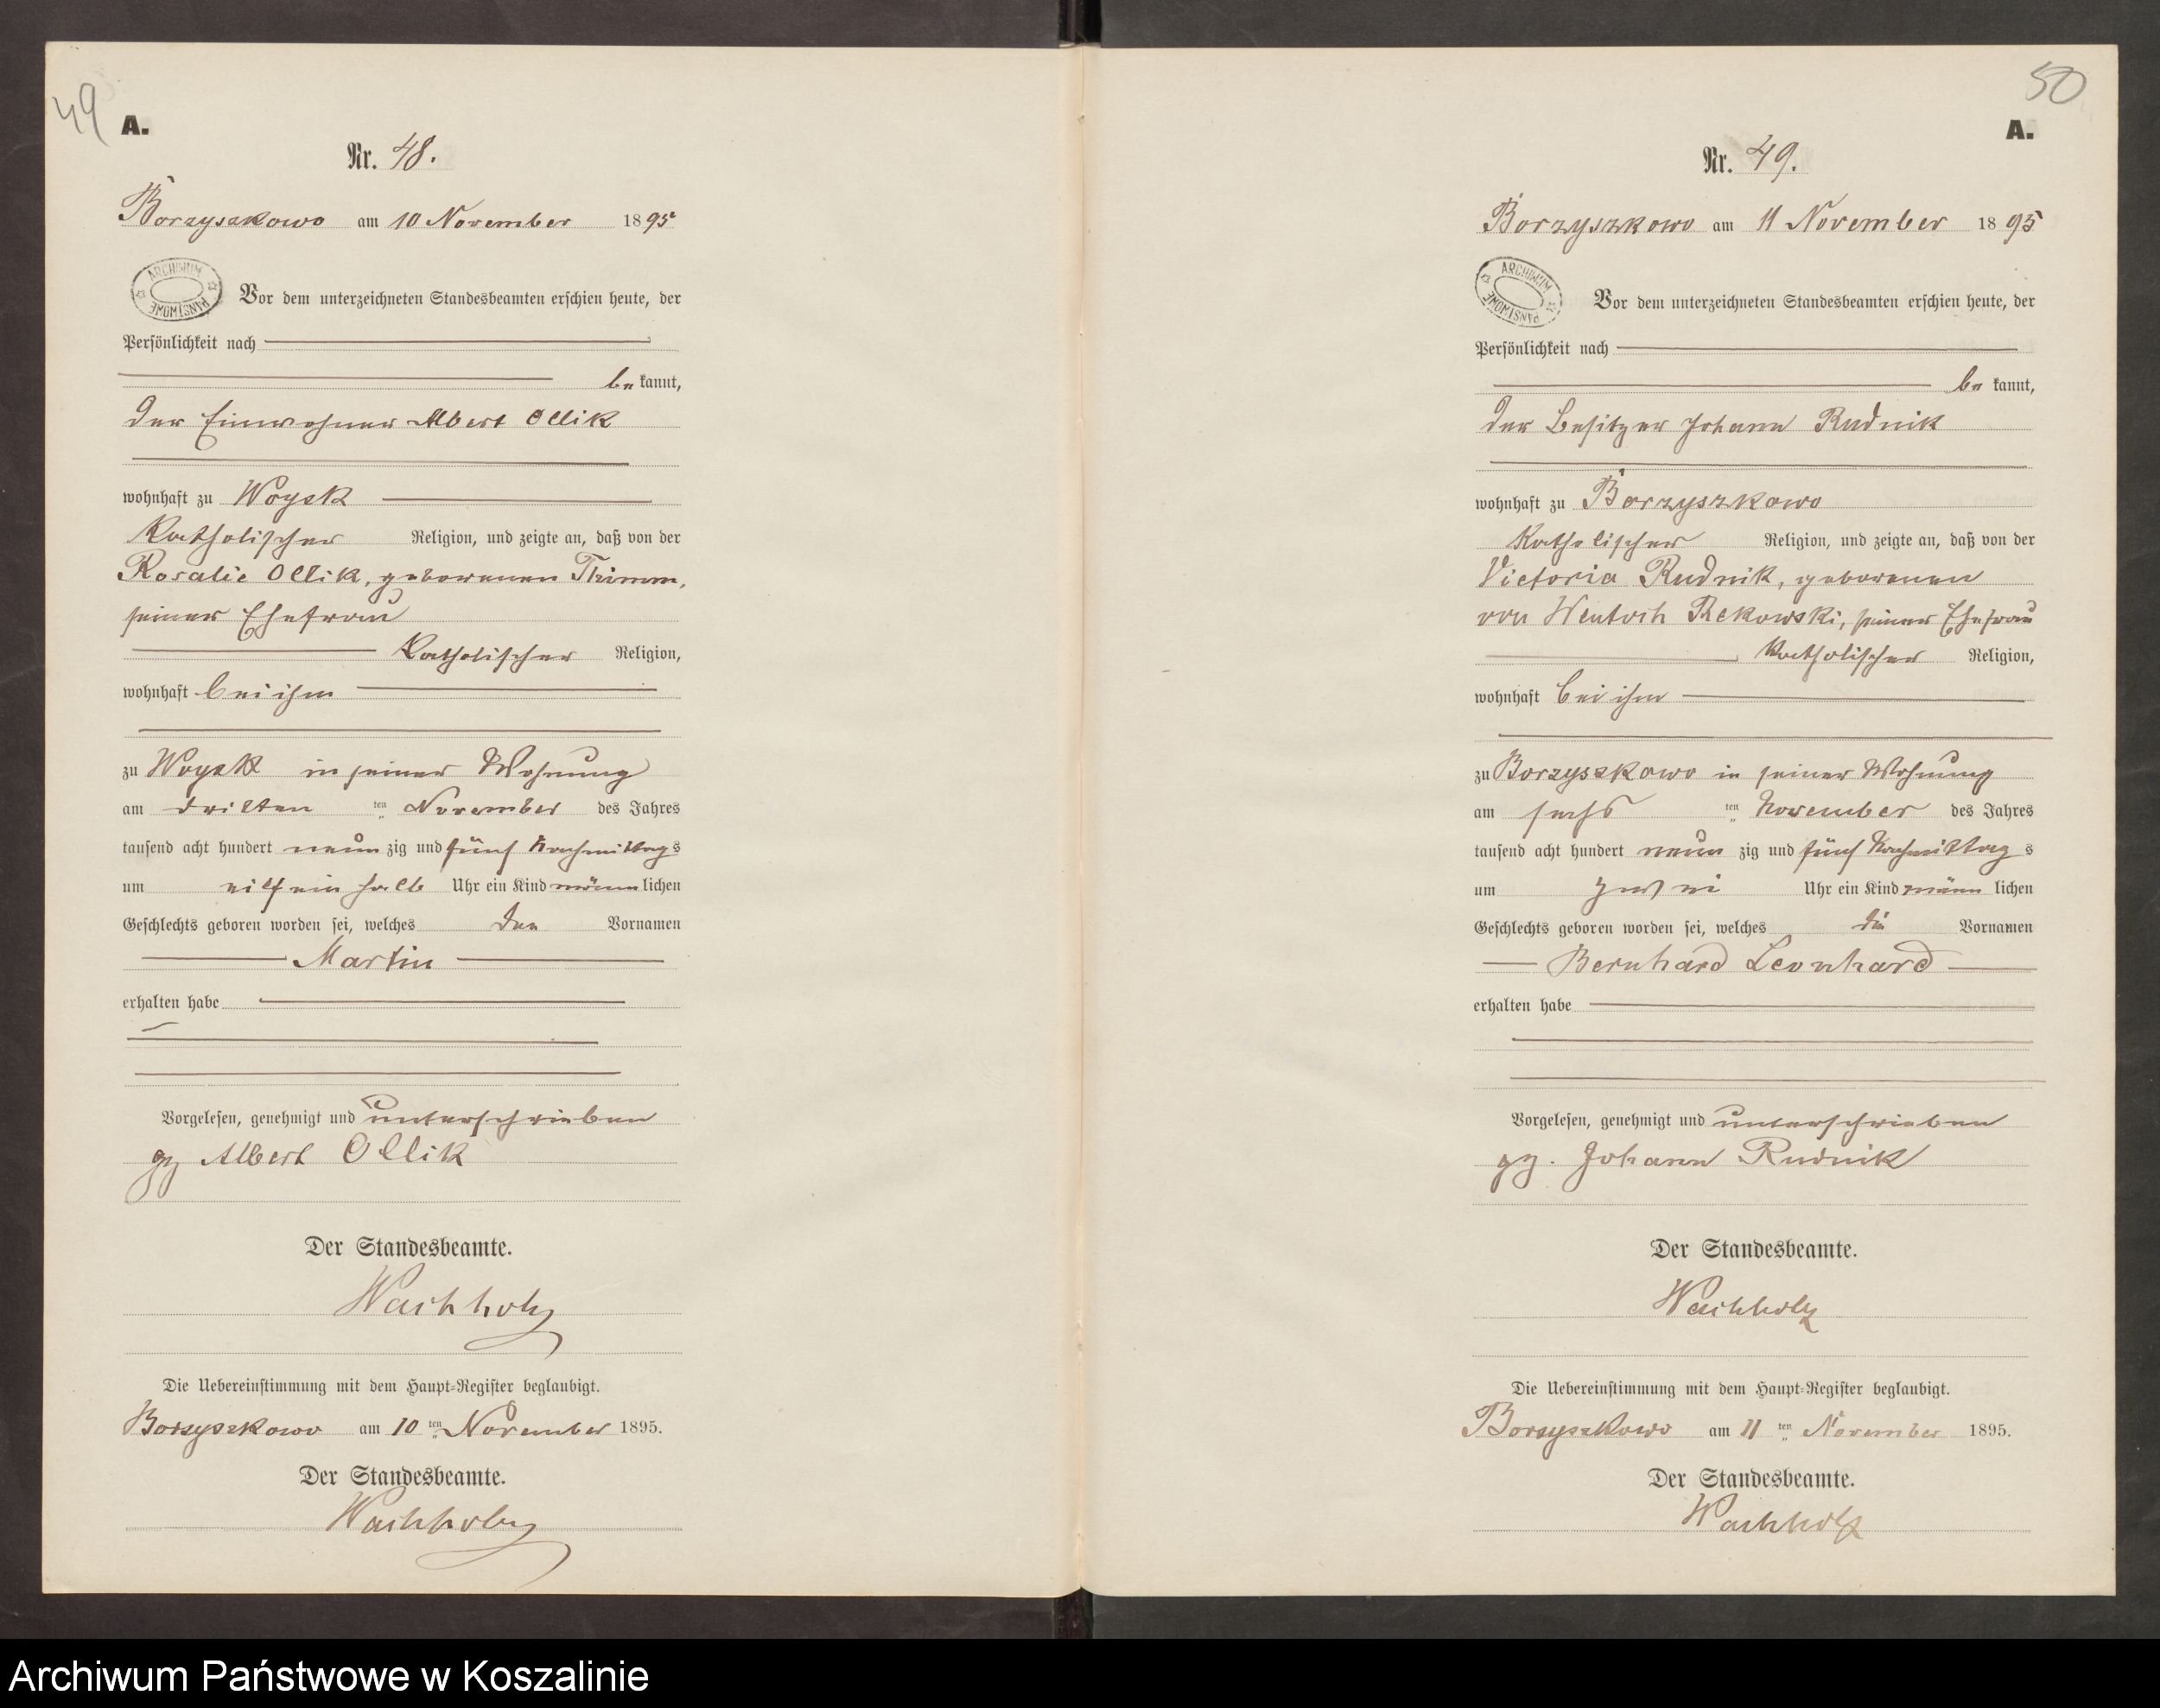 49
A.
Nr. 48.
Borzyszkowo am 10 November 1895
ARCHIWUM PAŃSTWOWE
Vor dem unterzeichneten Standesbeamten erschien heute, der
Persönlichkeit nach
bekannt,
der Einwohner Albert Ollik
wohnhaft zu Woysk
Katholischer Religion, und zeigte an, daß von der
Rosalie Ollik, geborenen Thimm,
seiner Ehefrau
Katholischer Religion,
wohnhaft bei ihm
zu Woysk in seiner Wohnung
am dritten ten November des Jahres
tausend acht hundert neunzig und fünf Nachmittags
um eilf ein halb Uhr ein Kind männlichen
Geschlechts geboren worden sei, welches den Vornamen
Martin
erhalten habe
Vorgelesen, genehmigt und unterschrieben
gz Albert Ollik
Der Standesbeamte.
Wachholz
Die Uebereinstimmung mit dem Haupt-Register beglaubigt.
Borzyszkowo am 10 ten November 1895.
Der Standesbeamte.
Wachholz
50
A.
Nr. 49.
Borzyszkowo am 11 November 1895
ARCHIWUM PAŃSTWOWE
Vor dem unterzeichneten Standesbeamten erschien heute, der
Persönlichkeit nach
bekannt,
der Besitzer Johann Rudnik
wohnhaft zu Borzyszkowo
Katholischer Religion, und zeigte an, daß von der
Victoria Rudnik, geborenen
von Wentoch Rekowski, seiner Ehefrau
Katholischer Religion,
wohnhaft bei ihm
zu Borzyszkowo in seiner Wohnung
am sechs ten November des Jahres
tausend acht hundert neunzig und fünf Nachmittags
um zwei Uhr ein Kind männlichen
Geschlechts geboren worden sei, welches die Vornamen
Bernhard Leonhard
erhalten habe
Vorgelesen, genehmigt und unterschrieben
gz. Johann Rudnik
Der Standesbeamte.
Wachholz
Die Uebereinstimmung mit dem Haupt-Register beglaubigt.
Borzyszkowo am 11 ten November 1895.
Der Standesbeamte.
Wachholz
Archiwum Państwowe w Koszalinie